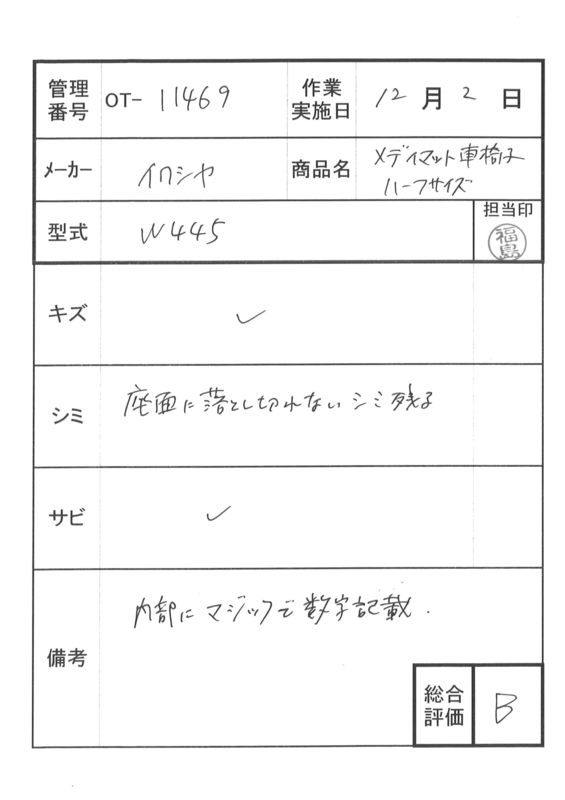 管理番号 OT- 11469 作業実施日 12月2日
メーカー イワシヤ 商品名 メディマット車椅子
ハーフサイズ
型式 W445 担当印
福島
キズ ✓
シミ 座面に落とし切れないシミ残る
サビ ✓
備考 内部にマジックで数字記載.
総合評価 B